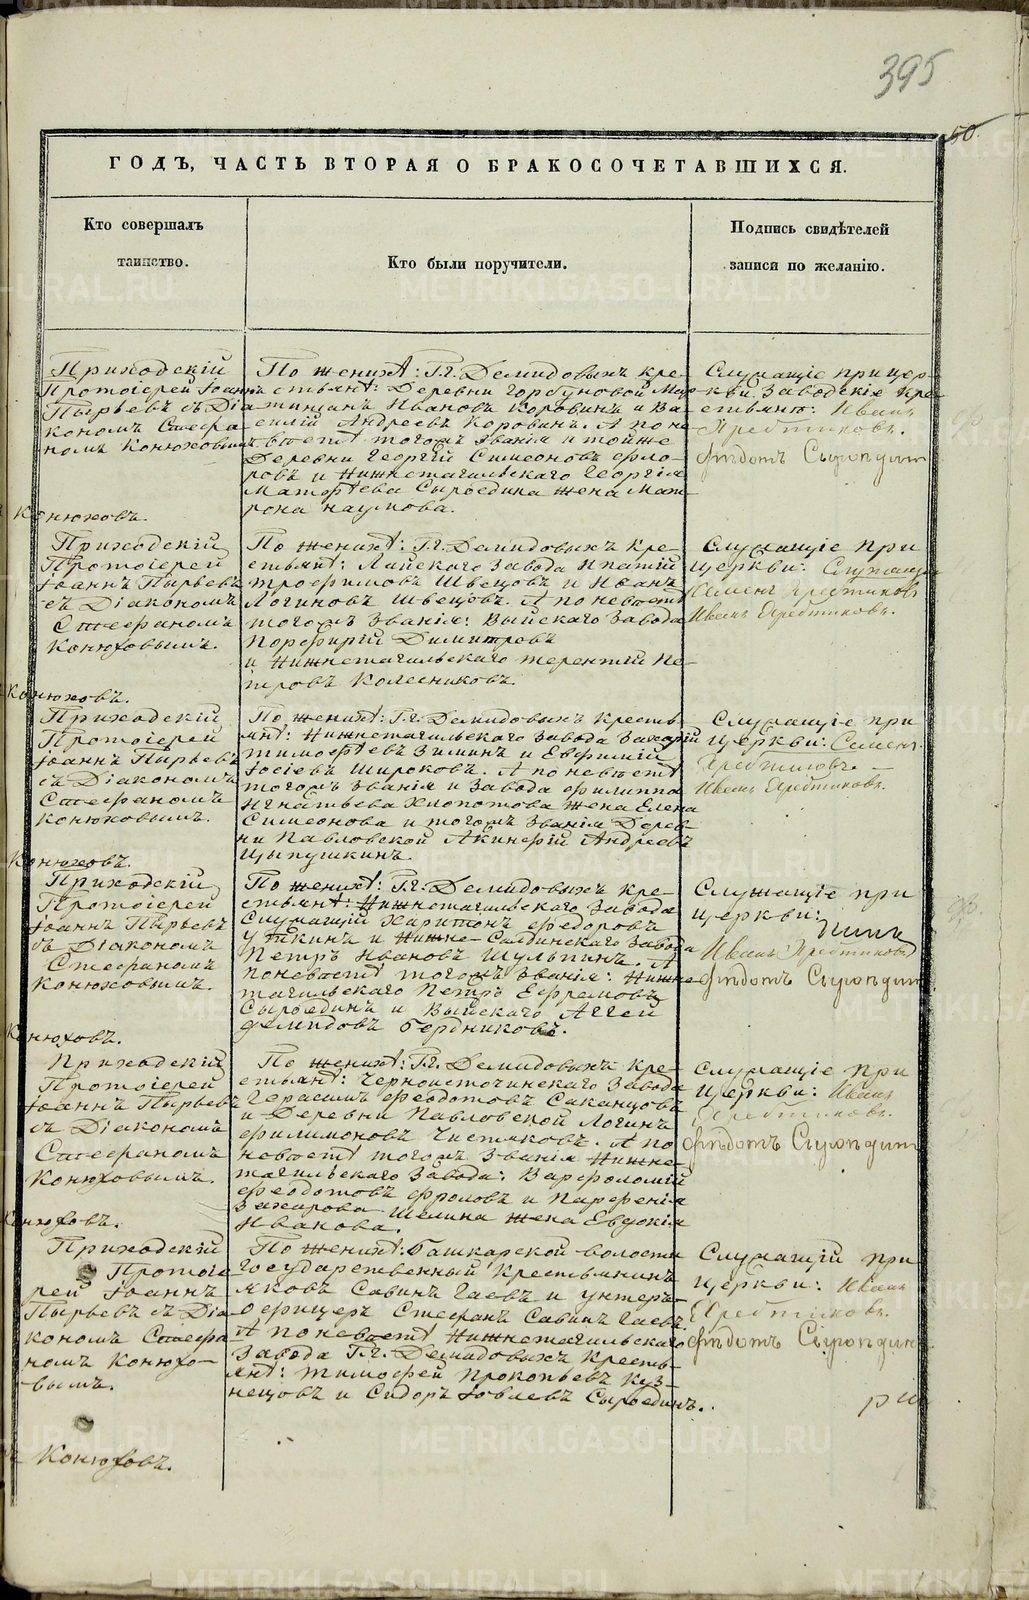 395
50.
ГОДЪ, ЧАСТЬ ВТОРАЯ О БРАКОСОЧЕТАВШИХСЯ.
Кто совершалъ
таинство.
Кто были поручители.
Подпись свидѣтелей
записи по желанію.
Приходскій
Протоіерей Іоаннъ
Пырьевъ съ Діа-
кономъ Стефа-
номъ Конюховымъ
Конюховъ.
По женихѣ: Г.г. Демидовыхъ кре-
стьянѣ: Деревни Горбуновой Мар-
тиніанъ Ивановъ Коровинъ и Ва-
силій Андреевъ Коровинъ. А по не-
вѣстѣ тогожъ званія и тойже
Деревни Георгій Симеоновъ Фло-
ровъ и Нижнетагильскаго Георгія
Матфѣева Сыроедина жена Мат-
рона Наумова.
Служащіе при цер-
кви Заводскіе Кре-
стьянѣ: Иванъ
Хребтиковъ.
Ѳедотъ Сыроѣдин
Приходскій
Протоіерей
Іоаннъ Пырьевъ
съ Діакономъ
Стефаномъ
Конюховымъ.
Конюховъ.
По женихѣ: Г.г. Демидовыхъ кре-
стьянѣ: Лайскаго Завода Ипатій
Трофимовъ Швецовъ и Иванъ
Логиновъ Швецовъ. А по невѣстѣ
тогожъ званія: Выйскаго Завода
Порфирій Димитревъ
и Нижнетагильскаго Терентій Пе-
тровъ Колесниковъ.
Служащіе при
Церкви: Служащи
Семенъ Хребтиковъ
Иванъ Хребтиковъ.
Приходскій
Протоіерей
Іоаннъ Пырьевъ
съ Діакономъ
Стефаномъ
Конюховымъ.
Конюховъ.
По женихѣ: Г.г. Демидовыхъ кресть-
янѣ: Нижнетагильскаго Завода Захарій
Тимофѣевъ Зиминъ и Евфимій
Іосіевъ Широковъ. А по невѣстѣ
тогожъ званія и Завода Филиппа
Игнатьева Хлопотова жена Елена
Симеонова и тогожъ званія Дерев-
ни Павловской Акинфій Андреевъ
Цыпушкинъ.
Служащіе при
Церкви: Семенъ
Хребтиковъ
Иванъ Хребтиковъ.
Приходскій
Протоіерей
Іоаннъ Пырьевъ
съ Діакономъ
Стефаномъ
Конюховымъ.
Конюховъ.
По женихѣ: Г.г. Демидовыхъ кре-
стьянѣ: Нижнетагильскаго Завода
Служащій Харитонъ Федоровъ
Уткинъ и Нижне-Салдинскаго Завода
Петръ Ивановъ Шульпинъ. А
по невѣстѣ тогожъ званія: Нижне-
тагильскаго Петръ Ефремовъ
Сыроединъ и Выйскаго Аггей
Демидовъ Бердниковъ.
Служащіе при
Церкви:
Иванъ Хребтиковъ
Ѳедотъ Сыроѣдин
Приходскій
Протоіерей
Іоаннъ Пырьевъ
съ Діакономъ
Стефаномъ
Конюховымъ.
Конюховъ.
По женихѣ: Г.г. Демидовыхъ кре-
стьянѣ: Черноисточинскаго Завода
Герасимъ Феодотовъ Саканцовъ
и Деревни Павловской Логинъ
Филимоновъ Чистяковъ. А по
невѣстѣ тогожъ званія Нижне-
тагильскаго Завода: Варфоломій
Феодотовъ Фроловъ и Парфенія
Захарова Шелина жена Евдокія
Иванова.
Служащіе при
Церкви: Иванъ
Хребтиковъ.
Ѳедотъ Сыроѣдин
Приходскій
Протоіе-
рей Іоаннъ
Пырьевъ съ Діа-
кономъ Стефа-
номъ Конюхо-
вымъ.
Конюховъ.
По женихѣ: Башкарской волости
Государственный Крестьянинъ
Яковъ Савинъ Гаевъ и унтеръ-
Офицеръ Стефанъ Савинъ Гаевъ.
А по невѣстѣ Нижнетагильскаго
Завода Г.г. Демидовыхъ Кресть-
янѣ: Тимофей Прокопьевъ Куз-
нецовъ и Сидоръ Іовлевъ Сыроединъ.
Служащій при
Церкви: Иванъ
Хребтиковъ.
Ѳедотъ Сыроѣдин